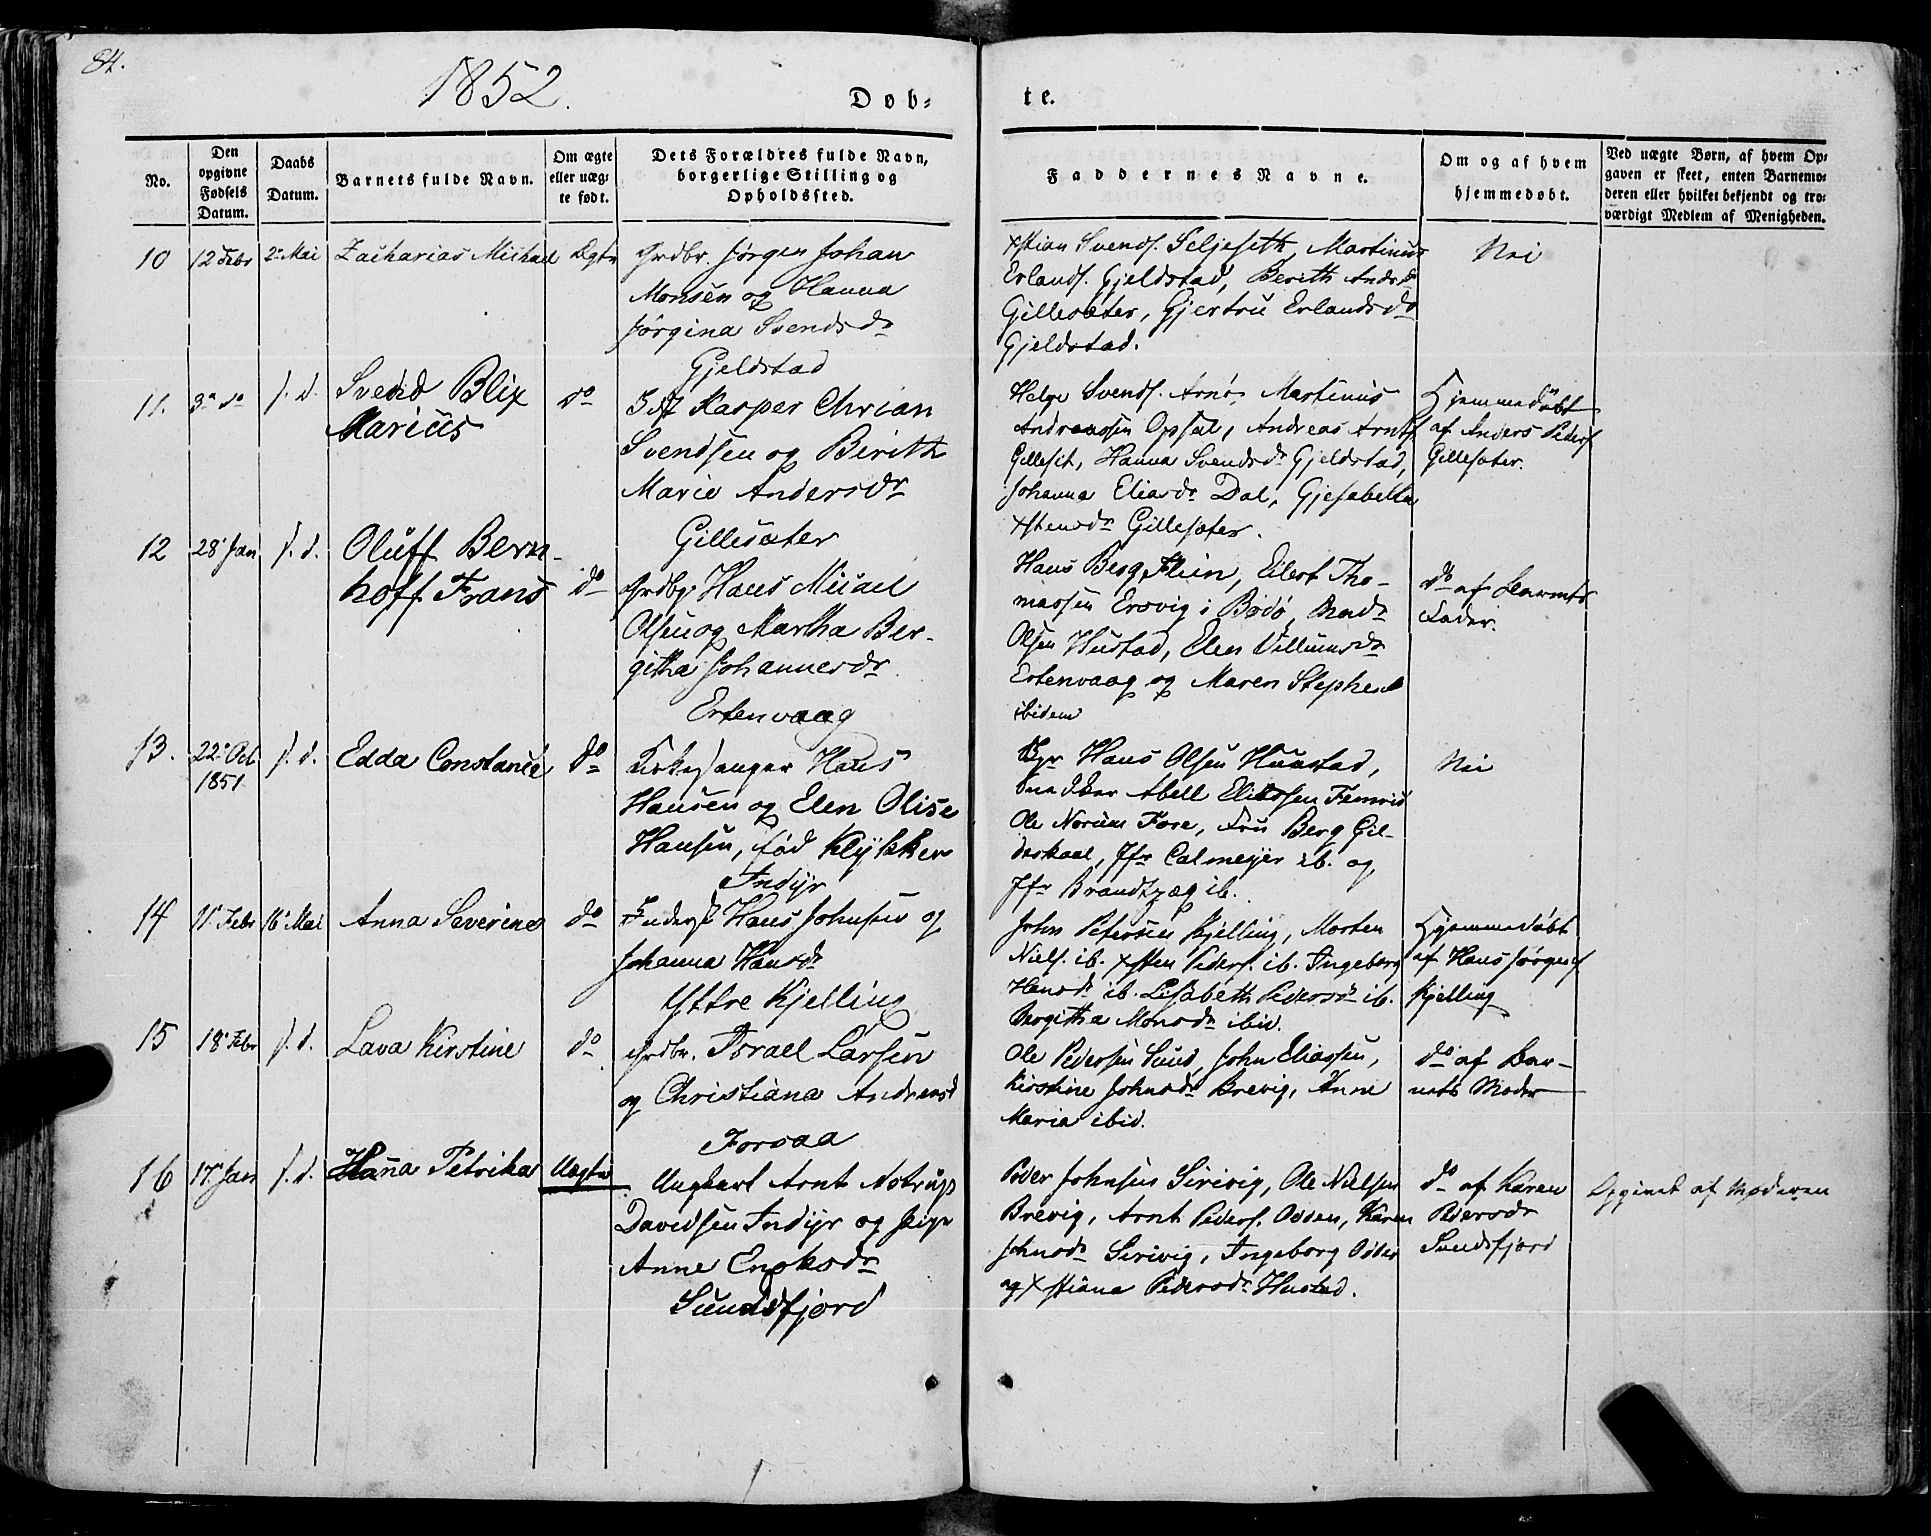 84.
1852.
Døb-
te.
No.
Den opgivne Fødsels Datum.
Daabs Datum.
Barnets fulde Navn.
Om ægte eller uægte født.
Dets Forældres fulde Navn, borgerlige Stilling og Opholdssted.
Faddernes Navne.
Om og af hvem hjemmedøbt.
Ved uægte Børn, af hvem Opgaven er skeet, enten Barnemoderen eller hvilket bekjendt og troværdigt Medlem af Menigheden.
10 12 Febr 2 Mai Zacharias Michael Ægte
Grdbr. Jørgen Johan
Monsen og Hanna
Jørgina Svendsdr
Gjeldstad
Xstian Svends. Seljeseth, Martinus
Erlands. Gjeldstad, Berith Andsdr
Gillesæter, Gjertru Erlandsdr
Gjeldstad.
Nei
11. 3 do s. d. Svend Blix
Marius
do
Kasper Chrian
Svendsen og Berith
Marie Andersdr
Gillesæter
Helge Svends. Arnø, Martinus
Andreassen Opsal, Andreas Arntf
Gilleset, Hanna Svendsdr Gjeldstad,
Johanna Eliasdr Dal, Gjesabella
Xstensdr Gillesæter.
Hjemmedøbt
af Anders Peders
Gillesæter.
12 28 Jan s. d. Oluff Bern-
hoff Frans
do
Grdbr. Hans Misael
Olsen og Martha Ber-
githa Johannesdr
Ertenvaag
Hans Berg Flein, Eilert Tho-
massen Ersvig i Bodø,
Olsen Hustad, Elen Villumsdr
Ertenvaag og Maren Stephensd
ibidem
do af Barnets
Fader.
13. 22 Oct
1851
s. d. Edda Constance do
Kirkesanger Hans
Hansen og Elen Olise
Hansen, fød Klykken
Indyr
Hans Olsen Huustad,
Snedker Abell Eliassen Femris
Ole Norum Fore, Fru Berg Gil-
deskaal, Jfr Calmeyer ib. og
Jfr Brandtzæg ib.
Nei
14 11 Febr 16 Mai Anna Severine do
Hans Johnsen og
Johanna Hansdr
Yttre Kjelling
John Petersen Kjelling, Morten
Niels. ib. Xsten Peders. ib. Ingeborg
Hansdr ib. Lisabeth Pedersdr ib.
Bergitha Monsdr ibid.
Hjemmedøbt
af Hans Jørgens
Kjelling
15 18 Febr s. d. Lava Kirstine do
Grdbr. Israel Larsen
og Christiana Andreasd
Forsaa
Ole Pedersen Sund, John Eliassen,
Kirstine Johnsdr Brevig, Anne
Maria ibid.
do af Bar-
nets Moder
16 17 Jan s. d. Hanna Petrikka Uægte
Ungkarl Arnt Astrup
Davidsen Indyr og Pige
Anne Enoksdr
Sundsfjord
Peder Johnsen Sirivig, Ole Nielsen
Brevig, Arnt Peders. Odden, Karen
Johnsdr Sirivig, Ingeborg Odden
og Xstiana Pedersdr Hustad.
do af Karen
Pedersdr
Sundsfjord
Opgivet af Moderen